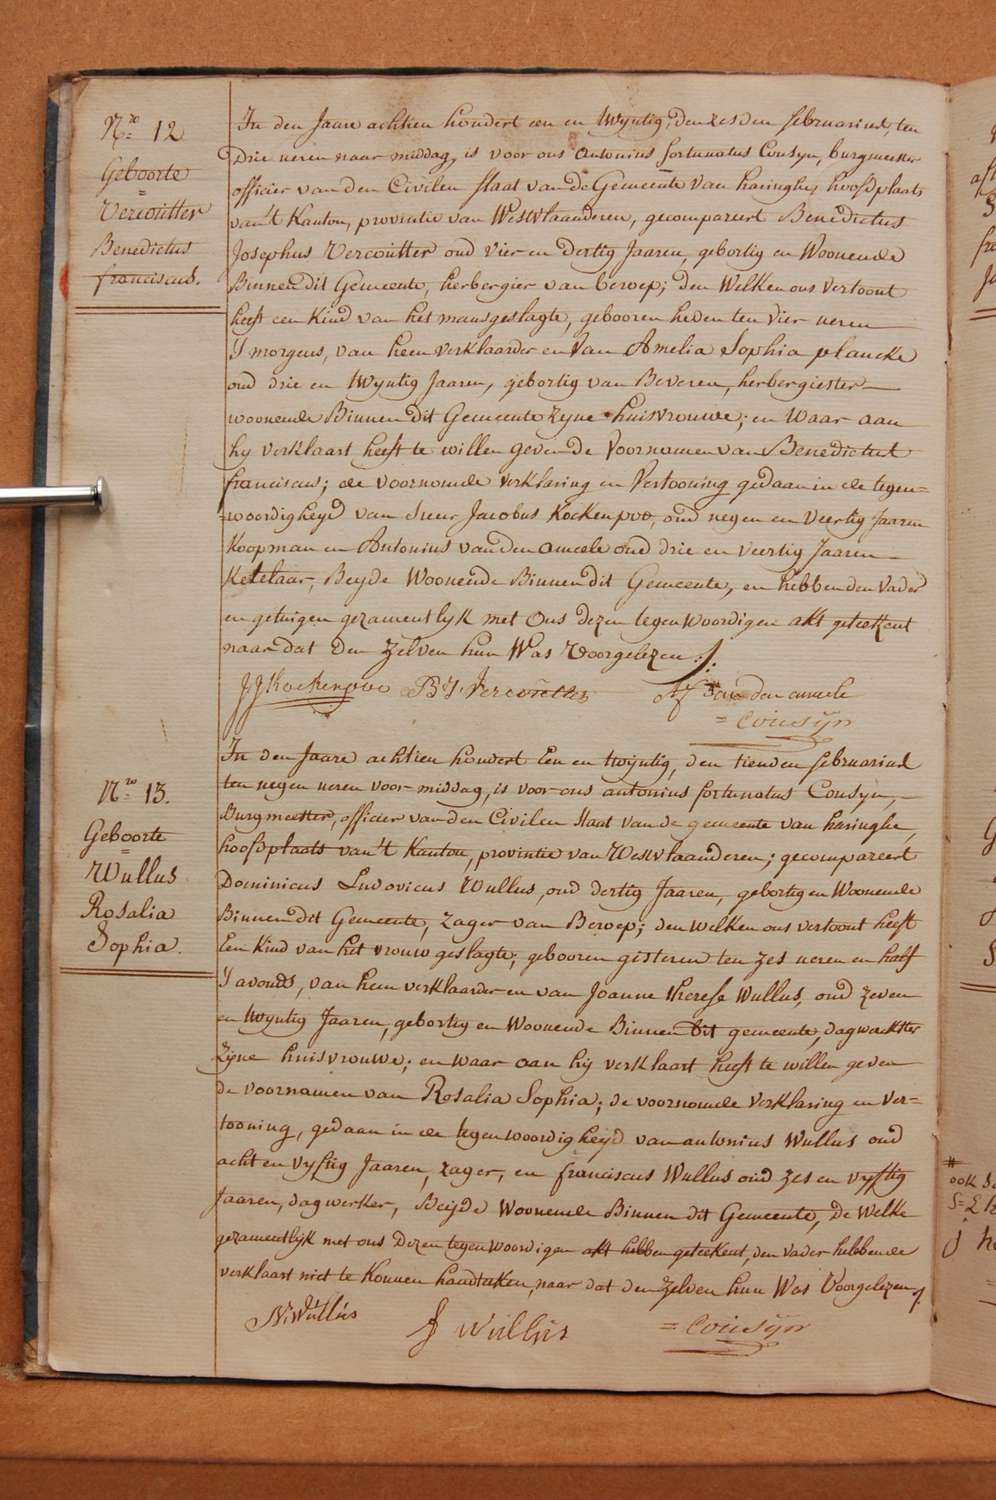 Nro 12
Geboorte
=
Vercoutter
Benedictus
franciscus.
In den Jaare achtien hondert een en twyntig, den zesden februarius, ten
drie ueren naar middag, is voor ons Antonius fortunatus Cousyn, burgmeester
officier van den Civilen staat van de Gemeente van haringhe, hoofdplaats
van't Kanton, provintie van Westvlaanderen, gecompareert Benedictus
Josephus Vercoutter oud vier en dertig Jaaren, gebortig en Woonende
Binnen dit Gemeente, herbergier van beroep; den Welken ons vertoont
heeft een kind van het mansgeslagte, gebooren heden ten vier ueren
S'morgens, van hem verklaarder en van Amelia Sophia plancke
oud drie en twyntig Jaaren, gebortig van Beveren, herbergiester
woonende Binnen dit Gemeente zyne huisvrouwe; en Waar aan
hy verklaart heeft te willen geven de voornamen van Benedictus
franciscus; de voornoemde verklaring en Vertooning gedaan in de tegen=
=woordigheyd van sieur Jacobus Kockenpoo, oud negen en Veertig Jaaren
Koopman en Antonius van den ameele oud drie en veertig Jaaren
Ketelaar, Beyde Woonende Binnen dit Gemeente, en hebben den Vader
en getuigen gezamentlyk met Ons dezen tegenwoordigen akt geteekent
naar dat den Zelven hun Was Voorgelezen
JJ Kockenpoo BJ Vercoutter AF Van den ameele
= Cousyn
Nro 13.
Geboorte
=
Wullus
Rosalia
Sophia.
In den Jaare achtien hondert Een en twyntig, den tienden februarius
ten negen ueren voor middag, is voor ons antonius fortunatus Cousyn,
Burgmeester, officier van den Civilen Staat van de gemeente van haringhe,
hoofdplaats van't Kanton, provintie van Westvlaanderen; gecompareert
Dominicus Ludovicus Wullus, oud dertig Jaaren, gebortig en Woonende
Binnen dit Gemeente, Zager van Beroep; den welken ons vertoont heeft
Een Kind van het vrouw geslagte; gebooren gisteren ten zes ueren en half
S'avonds, van hem verklaarder en van Joanne therese Wullus, oud zeven
en twyntig Jaaren, gebortig en Woonende Binnen dit gemeente, dagwerkster
Zijne huisvrouwe; en waar aan hij verklaart heeft te willen geven
de voornamen van Rosalia Sophia; de voornoemde Verklaring en Ver=
tooning, gedaan in de tegenwoordigheyd van antonius Wullus oud
acht en vyftig Jaaren, zager, en franciscus Wullus oud zes en vyftig
Jaaren, dagwerker, Beijde Woonende Binnen dit Gemeente, De Welke
gezamentlijk met ons Dezen tegenwoordigen akt hebben geteekent, den vader hebbende
verklaart niet te Konnen handteeken, naar dat den Zelven hun Was Voorgelezen
Wullus
f Wullus
= Cousyn
ook